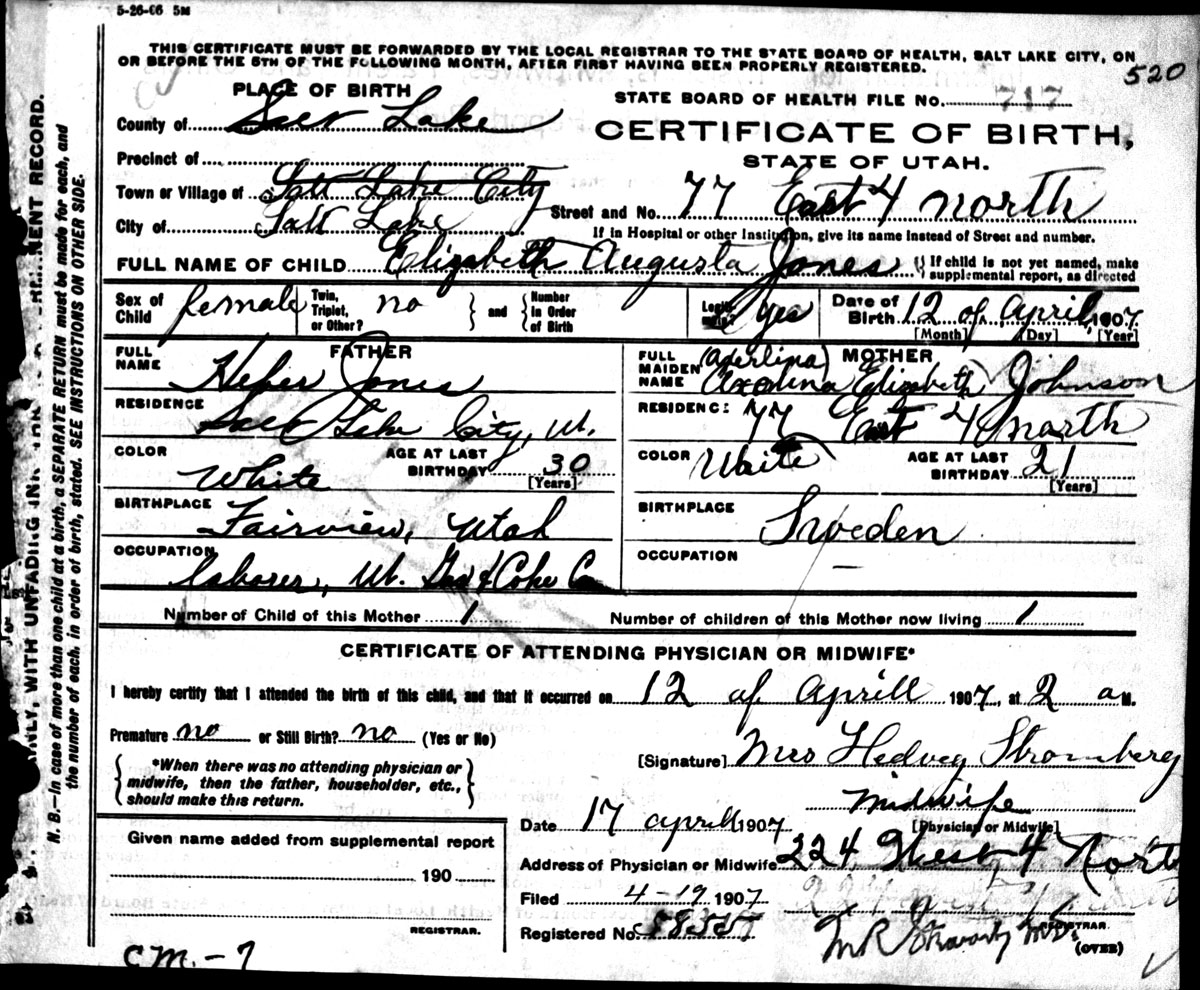 5-26-06 5M
THIS CERTIFICATE MUST BE FORWARDED BY THE LOCAL REGISTRAR TO THE STATE BOARD OF HEALTH, SALT LAKE CITY, ON
OR BEFORE THE 5TH OF THE FOLLOWING MONTH, AFTER FIRST HAVING BEEN PROPERLY REGISTERED.
520
PLACE OF BIRTH
STATE BOARD OF HEALTH FILE No. 717
County of Salt Lake
CERTIFICATE OF BIRTH,
STATE OF UTAH.
Precinct of
Town or Village of Salt Lake City
Street and No. 77 East 4 north
City of Salt Lake
If in Hospital or other Institution, give its name instead of Street and number.
FULL NAME OF CHILD Elizabeth Augusta Jones { If child is not yet named, make
supplemental report, as directed
Sex of Child female
Twin, Triplet, or Other? no
} and { Number in Order of Birth
yes
Date of Birth 12 of April, 1907
[Month] [Day] [Year]
FATHER
FULL NAME Heber Jones
MOTHER
FULL MAIDEN NAME Elizabeth Johnson
RESIDENCE Salt Lake City, Ut.
RESIDENCE 77 East 4 north
COLOR White
AGE AT LAST BIRTHDAY 30
[Years]
COLOR Waite
AGE AT LAST BIRTHDAY 21
[Years]
BIRTHPLACE Fairview, Utah
BIRTHPLACE Sweden
OCCUPATION laborer, Ut. Gas & Coke Co
OCCUPATION —
Number of Child of this Mother 1
Number of children of this Mother now living 1
CERTIFICATE OF ATTENDING PHYSICIAN OR MIDWIFE*
I hereby certify that I attended the birth of this child, and that it occurred on 12 of Aprill 1907, at 2 a M.
Premature no or Still Birth? no (Yes or No)
[Signature] Mrs Hedveg Stromberg
*When there was no attending physician or
midwife, then the father, householder, etc.,
should make this return.
Midwife
[Physician or Midwife]
Date 17 aprill 1907
Given name added from supplemental report
190
REGISTRAR.
Address of Physician or Midwife 224 West 4 North
Filed 4-19 1907
Registered No.
REGISTRAR.
(OVER)
C.M.-7
N. B.—In case of more than one child at a birth, a SEPARATE RETURN must be made for each, and
the number of each, in order of birth, stated. SEE INSTRUCTIONS ON OTHER SIDE.
WITH UNFADING
RECORD.